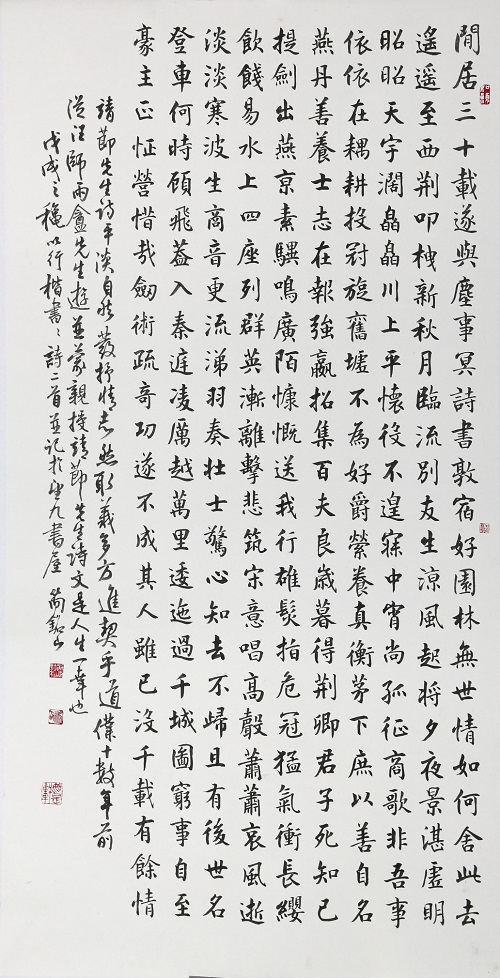 閒居三十載遂與塵事冥詩書敦宿好園林無世情如何舍此去
遥遥至西荆叩栧新秋月臨流別友生涼風起将夕夜景湛虛明
昭昭天宇濶皛皛川上平懷役不遑寐中宵尚孤征商歌非吾事
依依在耦耕投冠旋舊墟不為好爵縈養真衡茅下庶以善自名
燕丹善養士志在報強嬴招集百夫良歲暮得荆卿君子死知己
提劍出燕京素驥鳴廣陌慷慨送我行雄髮指危冠猛氣衝長纓
飲餞易水上四座列群英漸離擊悲筑宋意唱高聲蕭蕭哀風逝
淡淡寒波生商音更流涕羽奏壯士驚心知去不歸且有後世名
登車何時顧飛蓋入秦庭凌厲越萬里逶迤過千城圖窮事自至
豪主正怔營惜哉劒術疏奇功遂不成其人雖已没千載有餘情
靖節先生詩平淡自然發抒情志然取義多方進契乎道僕十數年前
從汪師雨盦先生遊並蒙親授靖節先生詩文是人生一幸也
戊戌之穐以行楷書〻詩二首並記於九書屋 簡銘山